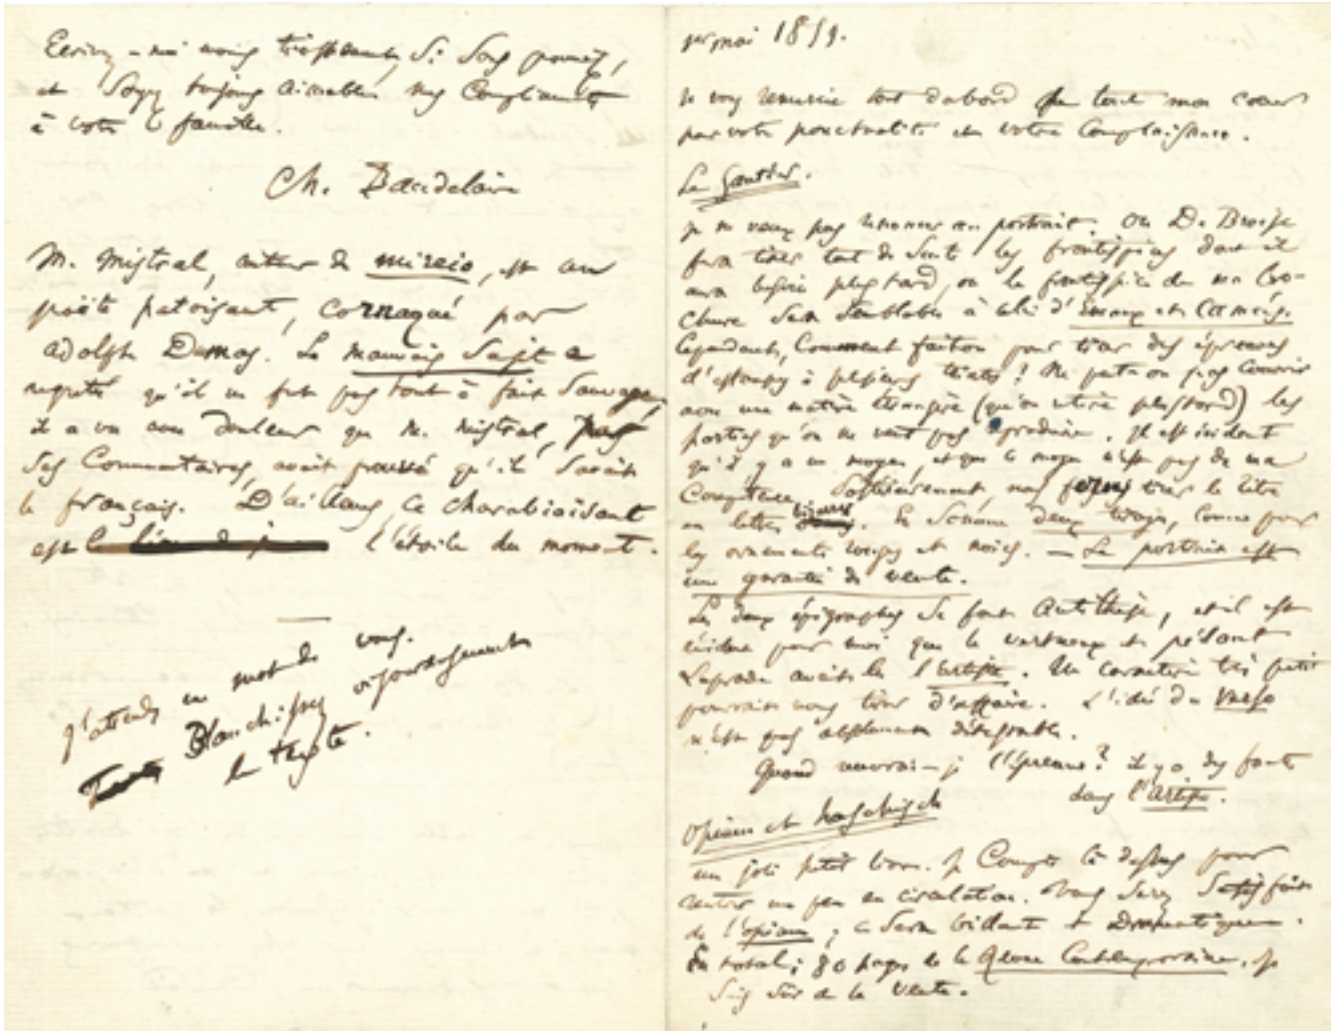 Ecrivez-moi moins tristement, si vous pouvez,
et soyez toujours aimable. Mes compliments
à votre famille.
Ch. Baudelaire
M. Mistral, auteur de mireio, est un
poëte patoisant, cornaqué par
Adolphe Dumas. Le mauvais sujet a
regretté qu'il ne fut pas tout à fait sauvage,
il a vu avec douleur que M. Mistral, par
ses Commentaires, avait prouvé qu'il savait
le français. D'ailleurs, ce charabiaïsant
est l'étoile du moment.
J'attends un mot de vous.
Blanchissez vigoureusement
le texte.
1er mai 1859.
Je vous remercie tout d'abord de tout mon coeur
pour votre ponctualité et votre complaisance.
Le Gautier.
Je ne veux pas renoncer au portrait. Ou De Broise
fera tirer tout de suite les frontispices dont il
aura besoin plus tard, ou le frontispice de ma bro-
chure sera semblable à celui d'Emaux et Camées.
Cependant, comment fait-on pour tirer des épreuves
d'estampes à plusieurs états? Ne peut-on pas couvrir
avec une matière étrangère (qu'on retire plus tard) les
parties qu'on ne veut pas reproduire. Il est évident
qu'il y a un moyen, et que ce moyen n'est pas de ma
compétence. Postérieurement, nous ferons tirer le titre
en lettres bizarres. En somme deux tirages, comme pour
les ornements rouges et noirs. — Le portrait est
une garantie de vente.
Les deux épigraphes se font antithèse, et il est
évident pour moi que le vertueux et pédant
Laprade avait lu l'artiste. Un caractère très petit
pourrait nous tirer d'affaire. L'idée du verso
n'est pas absolument détestable.
Quand recevrai-je l'épreuve? il y a des fautes
dans l'Artiste.
Opium et haschisch
un joli petit livre. Je compte là dessus pour
rentrer un peu en circulation. Vous serez satisfait
de l'opium; ce sera brillant et dramatique.
En total; 80 pages de la Revue Contemporaine. Je
suis sûr de la vente.